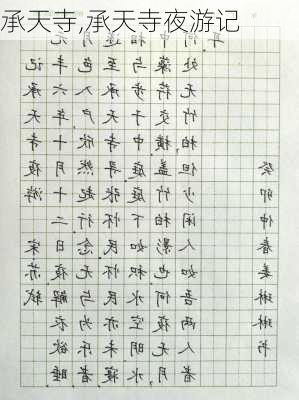 承天寺,承天寺夜游记
记承天寺夜游 宋 苏轼
元丰六年十月十二日夜解衣欲睡
月色入户欣然起行念无与为乐者
遂至承天寺寻张怀民怀民亦未寝
相与步于中庭庭下如积水空明水
中藻荇交横盖竹柏影也何夜无月,
何处无竹柏但少闲人如吾两人者
耳
癸卯仲春姜琳琳书